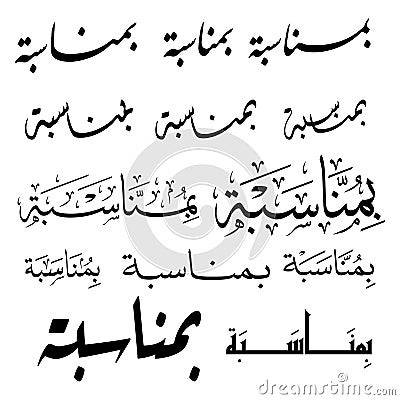 بمناسبة بمناسبة بمناسبة
بمناسبة بمناسبة بمناسبة
بِمُنَّاسَبَة بِمُنَّاسَبَة
بِمُنَّاسَبَة بمناسبة بِمُنَّاسَبَة
بِمَنَاسَبَة بمناسبة
dreamstime.com